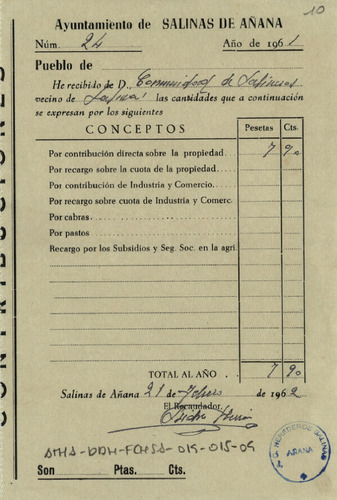 10
Ayuntamiento de SALINAS DE AÑANA
Núm. 24 Año de 1961
Pueblo de
He recibido de D., Comunidad de Salinas
vecino de Salinas las cantidades que a continuación
se expresan por los siguientes
CONCEPTOS Pesetas Cts.
Por contribución directa sobre la propiedad. 7 90
Por recargo sobre la cuota de la propiedad.
Por contribución de Industria y Comercio.
Por recargo sobre cuota de Industria y Comerc.
Por cabras
Por pastos
Recargo por los Subsidios y Seg. Soc. en la agri.
TOTAL AL AÑO 7 90
Salinas de Añana 21 de Febrero de 1962
El Recaudador,
ATHA-DDH-FCHSA-015-015-09
Son Ptas. Cts.
CONTRIBUCIONES
HEREDEROS SALINAS
AÑANA